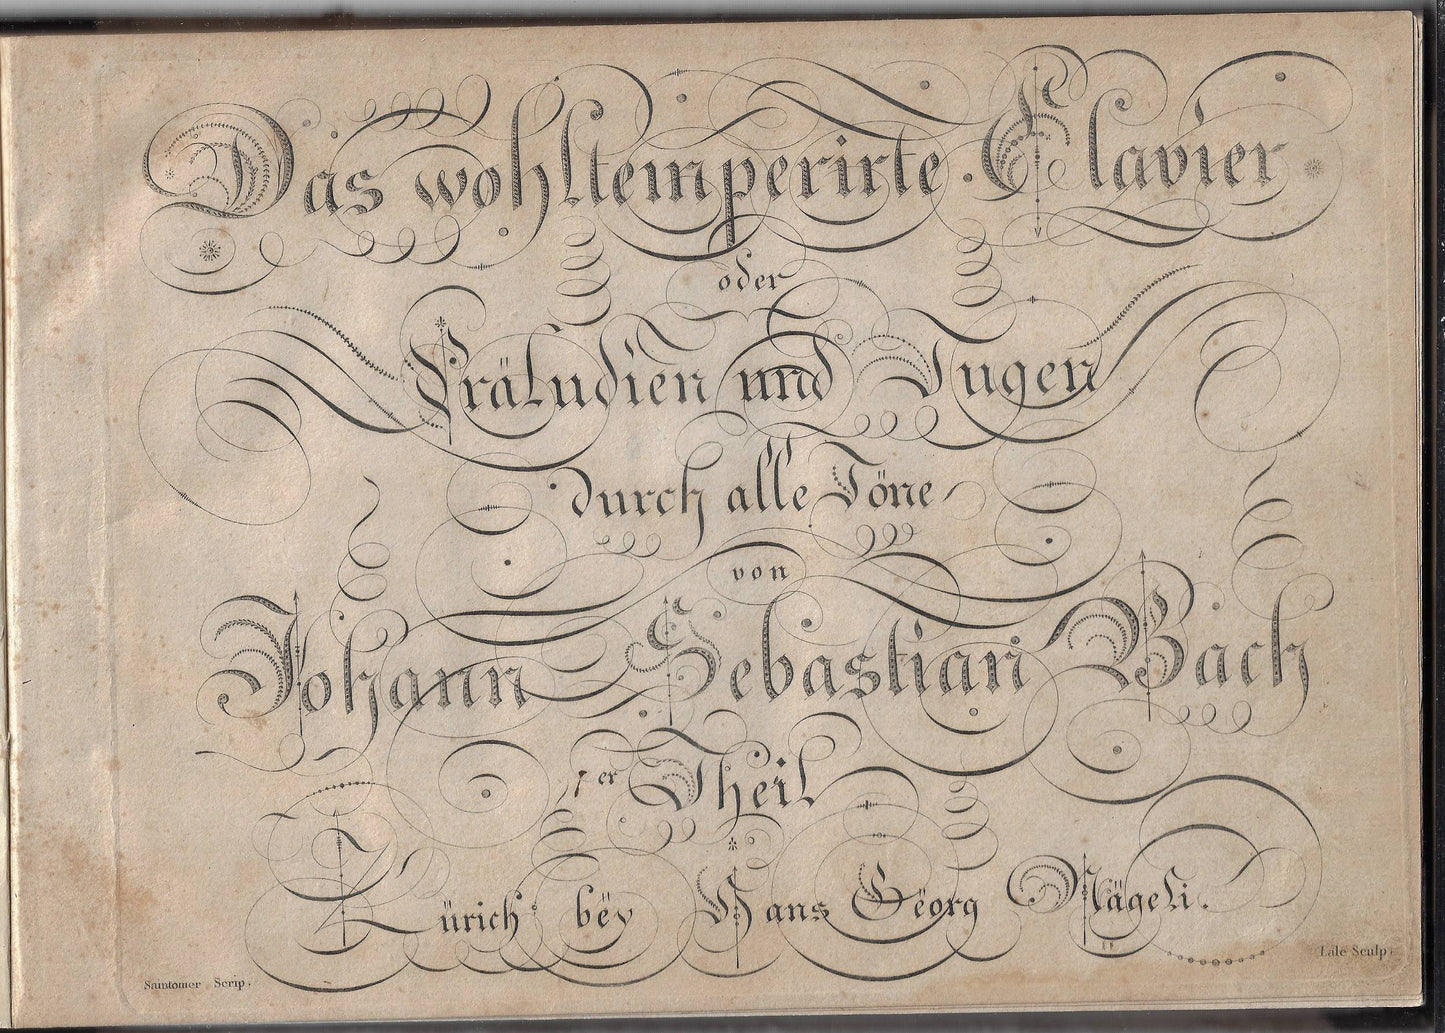 Das wohltemperirte Clavier
oder
Präludien und Fugen
durch alle Töne
von
Johann Sebastian Bach
1er Theil
Zürich bëy Hans Gëorg Nägeli.
Saintomer Scrip.
Lale Sculp.